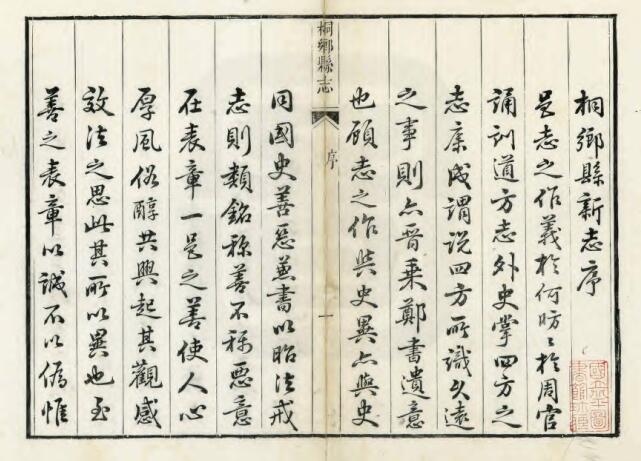 桐鄉縣新志序
邑志之作義於何昉〻於周官
誦訓道方志外史掌四方之
志康成謂說四方所識久遠
之事則亦晉乘鄭書遺意
也顧志之作與史異亦與史
桐鄉縣志
序
一
同國史善惡兼書以昭法戒
志則類銘稱善不稱惡意
在表章一邑之善使人心
厚風俗醇共興起其觀感
效法之思此其所以異也至
善之表章以誠不以偽惟